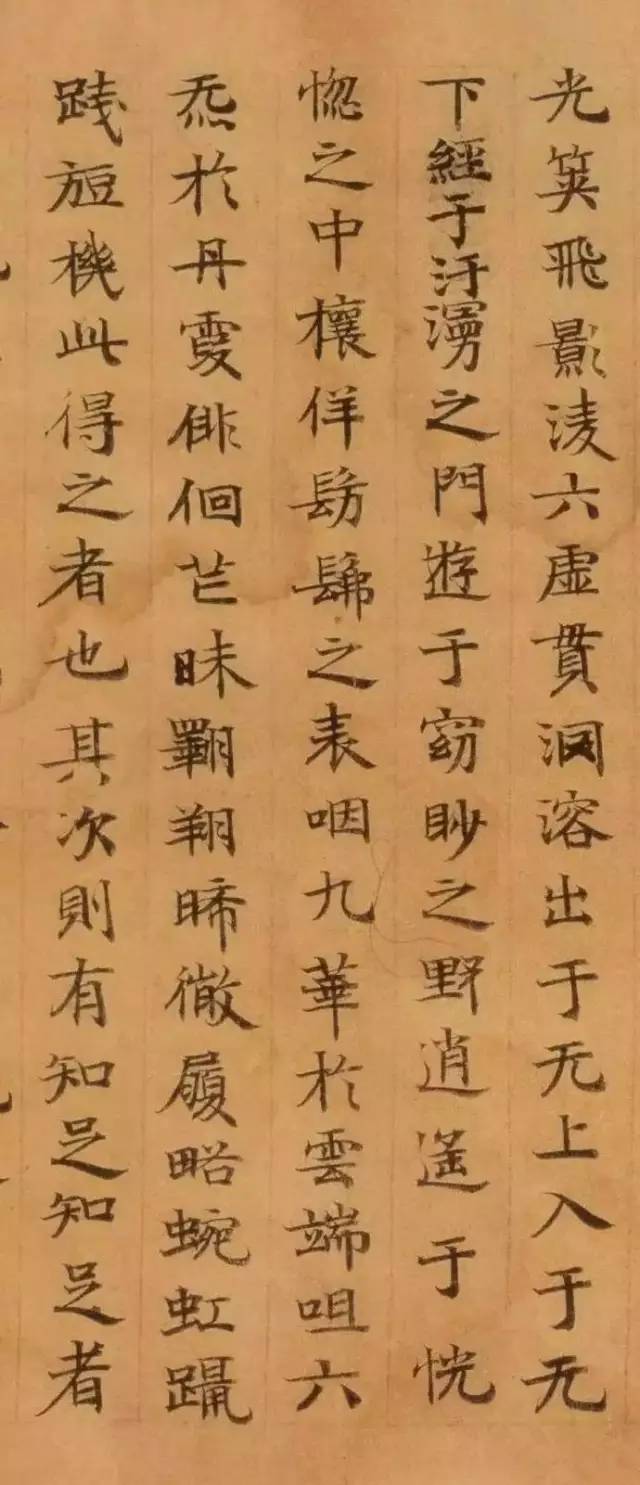 光筭飛影淩六虛貫洞溶出于无上入于无
下經于汗漫之門遊于窈眇之野逍遙于恍
惚之中欀佯髣髴之表咽九華於雲端咀六
炁於丹霞俳佪芒昧翱翔晞㣲履略蜿虹躡
踐旋機此得之者也其次則有知足知足者